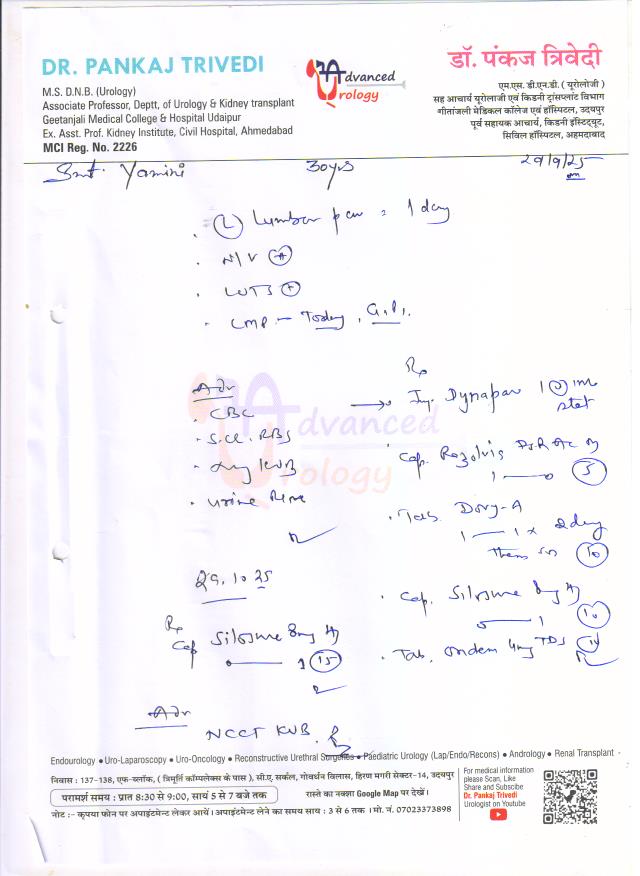 DR. PANKAJ TRIVEDI
M.S. D.N.B. (Urology)
Associate Professor, Deptt, of Urology & Kidney transplant
Geetanjali Medical College & Hospital Udaipur
Ex. Asst. Prof. Kidney Institute, Civil Hospital, Ahmedabad
MCI Reg. No. 2226
Advanced
Urology
डॉ. पंकज त्रिवेदी
एम.एस. डी.एन.डी. ( यूरोलोजी )
सह आचार्य यूरोलाजी एवं किडनी ट्रांसप्लांट विभाग
गीतांजली मेडिकल कॉलेज एवं हॉस्पिटल, उदयपुर
पूर्व सहायक आचार्य, किडनी इंस्टिट्यूट,
सिविल हॉस्पिटल, अहमदाबाद
Smt. Yamini 30yrs 29/9/25
(L) Lumbar pain = 1 day
N/V (+)
LUTS (+)
LMP - Today, G.P.
Adv
CBC
S.Cr. RBS
KUB
Urine
Rx
Inj. Dynapar 1 im
stat
Cap. Rezolvis
1 5
Tab. Doxy-A
1 1 x 2 day
then 10
Cap. Silosure 8mg
1 10
Tab. Ondem 4mg TDS
29.10.25
Rx
Cap Silosure 8mg
1 15
Adv
NCCT KUB.
Advanced
Urology
Endourology ● Uro-Laparoscopy ● Uro-Oncology ● Reconstructive Urethral Surgeries ● Paediatric Urology (Lap/Endo/Recons) ● Andrology ● Renal Transplant
निवास : 137-138, एफ-ब्लॉक, ( त्रिमूर्ति कॉम्पलेक्स के पास ), सी.ए. सर्कल, गोवर्धन विलास, हिरण मगरी सेक्टर-14, उदयपुर
परामर्श समय : प्रात 8:30 से 9:00, सायं 5 से 7 बजे तक
रास्ते का नक्शा Google Map पर देखें।
नोट :- कृपया फोन पर अपाइंटमेन्ट लेकर आयें। अपाइंटमेन्ट लेने का समय साय : 3 से 6 तक । मो. नं. 07023373898
For medical information
please Scan, Like
Share and Subscibe
Dr. Pankaj Trivedi
Urologist on Youtube